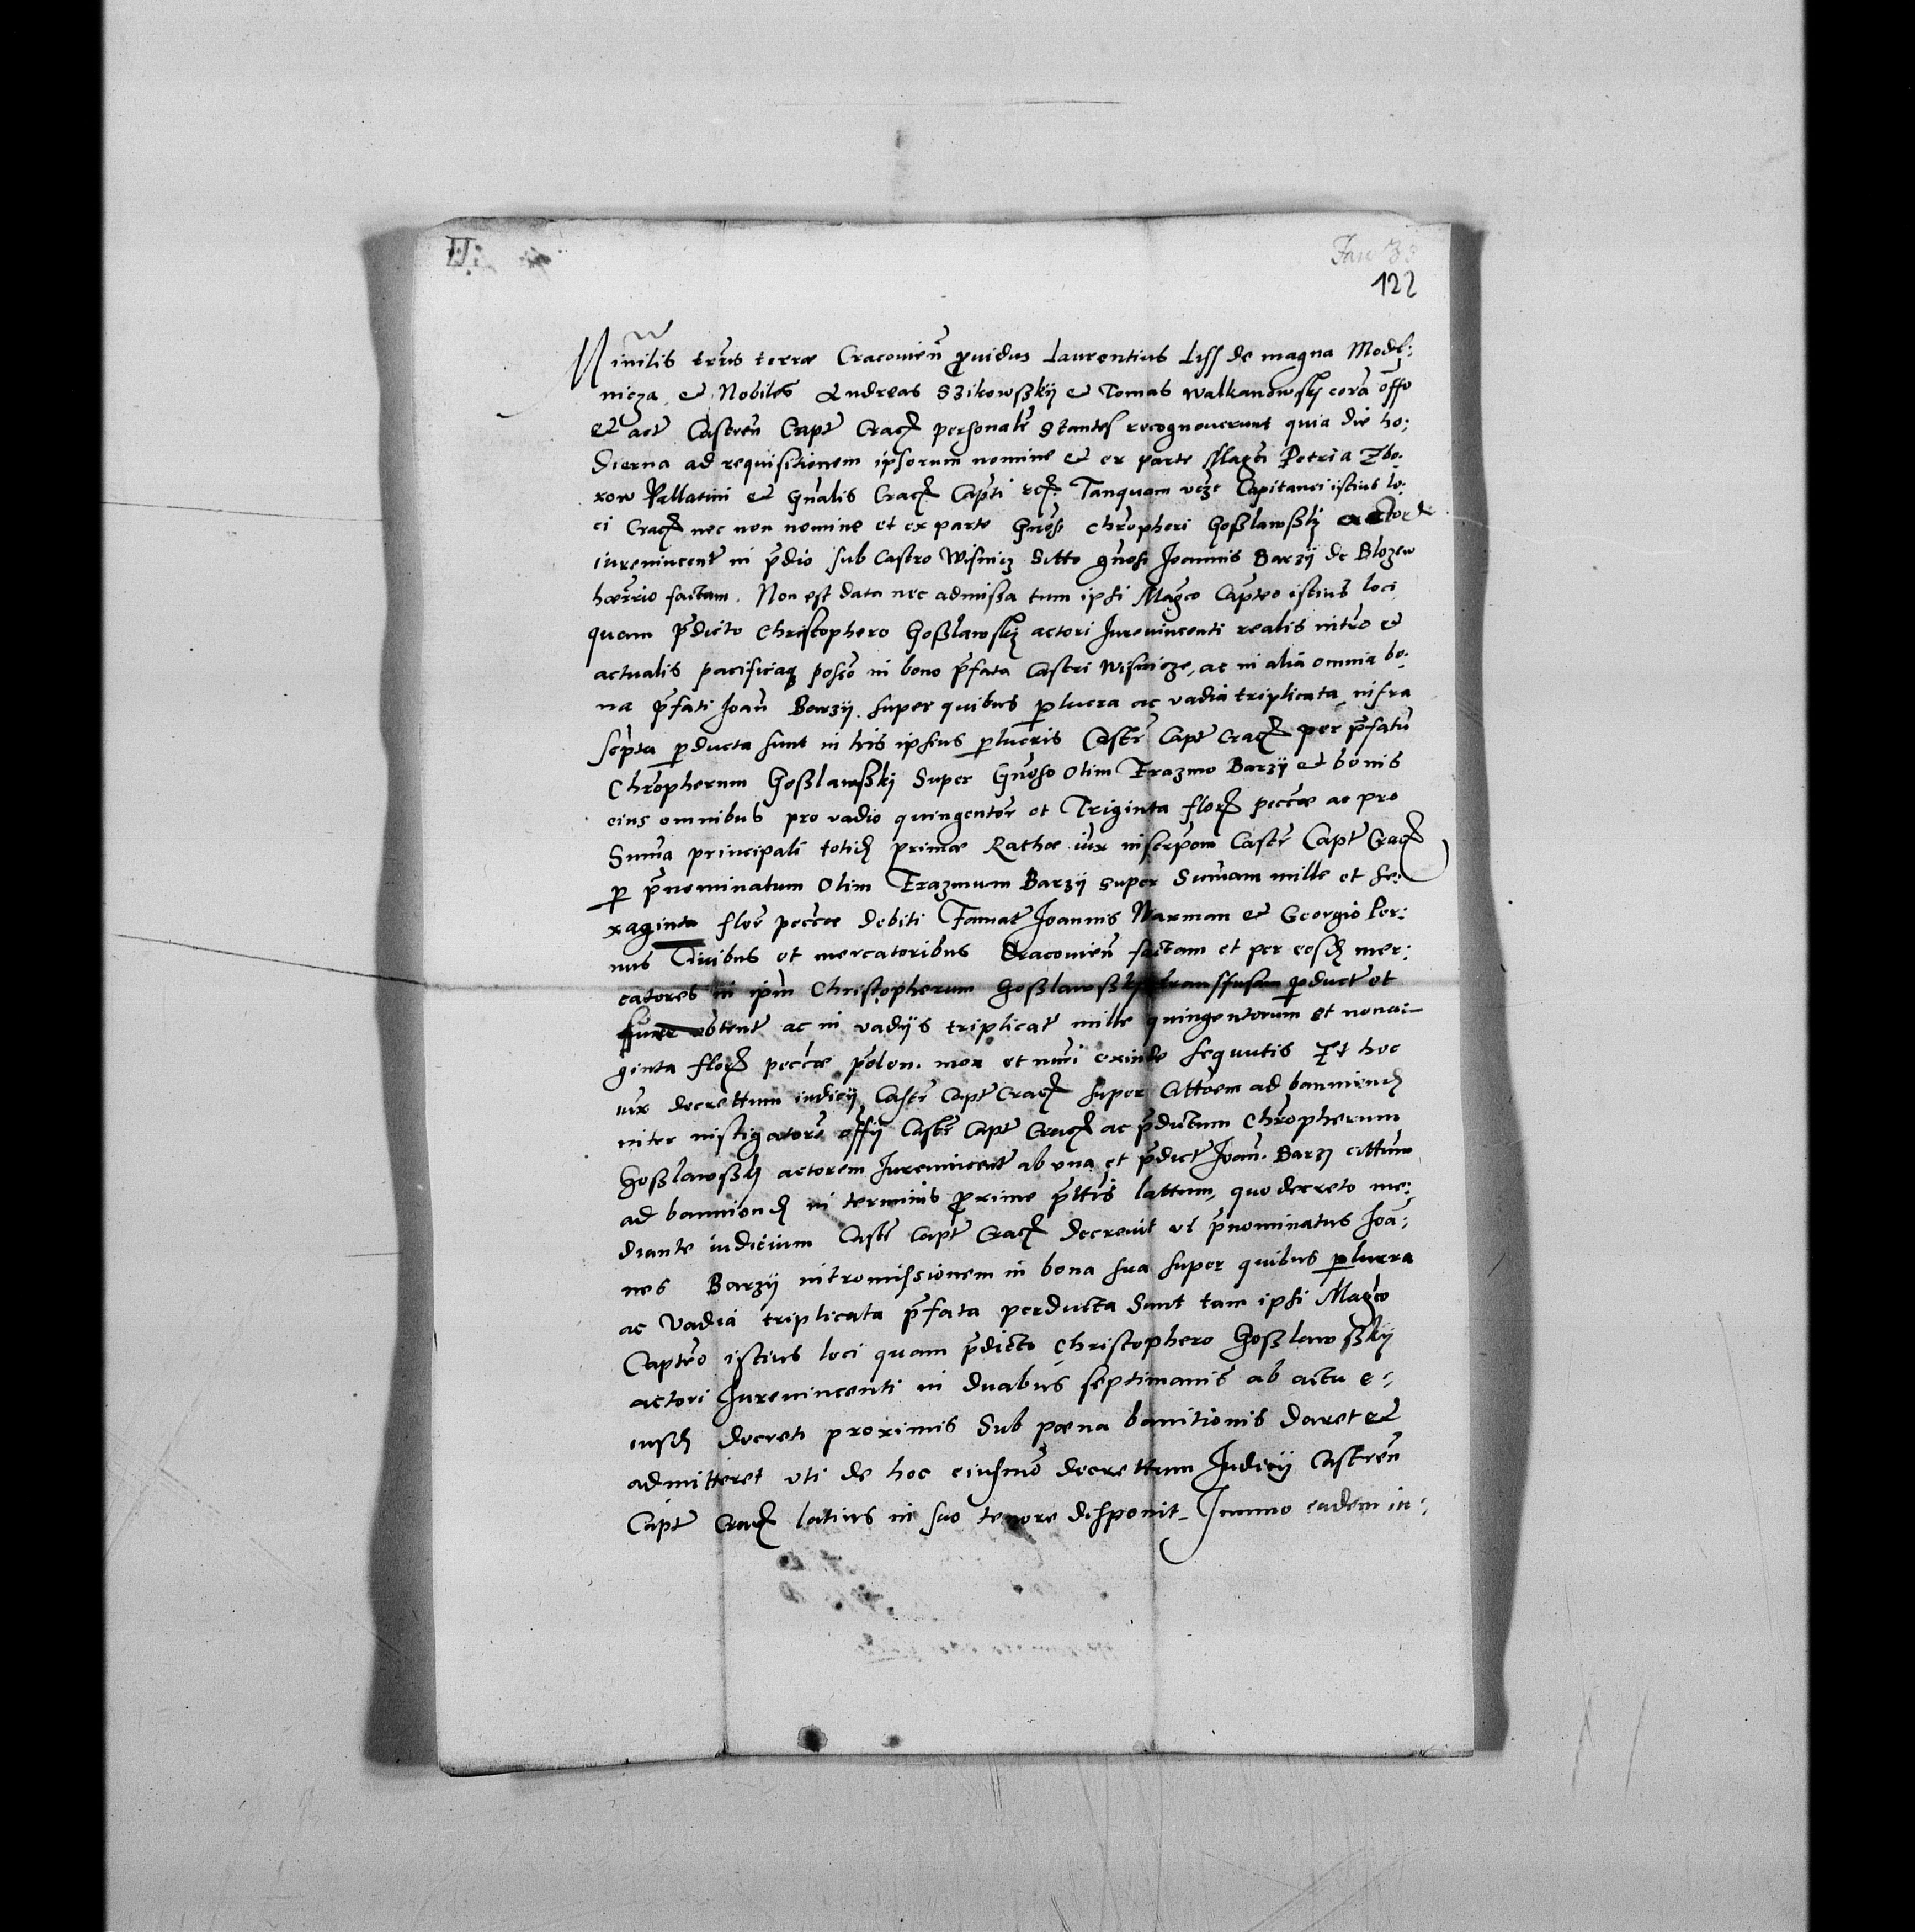 122
Minilis trus terræ Cracovien̄ providus Laurentius Liss de magna Model:
nicza et Nobiles Andreas Szikowßkij et Tomas walkanowskj corā offo
et act Castren̄ Capt Crac personalr̄ Stantes recognoverunt quia die ho:
dierna ad requisitionem ipsorum nomine et ex parte Magci Petri a Zbo:
row Pallatini et Gn̄alis Crac Capti ect. Tanquam vczt Capitanei istius lo:
ci Crac nec non nomine et ex parte Gn̄osi Chrōpheri Goßlawßkj
iurevincent in p̄dio sub Castro Wisnicz Sitto gn̄osi Joannis Barzij de Blozew
factam. Non est data nec admißa tum ipsi Magco Capteo istius loci
quam p̄dicto Christophero Goßlawskj actori Jurevincenti realis intro et
actualis pacificaq posseo in bono p̄fata Castri Wisnicze, ac in alia omnia bo:
na p̄fati Joan̄ Barzij super quibus p lucra ac vadia triplicata infra
septa p ducta sunt in lris ipsius p lucris Castr̄ Capt Crac per p̄fatū
Chrōpherum Goßlawßkj Super Gn̄oso olim Erazmo Barzij et bonis
eius omnibus pro vadio quingentor̄ et Triginta flor peccæ ac pro
Suma principali totid primæ Rathæ iux inscrpom Castr̄ Capt Crac
p p̄nominatum Olim Erazmum Barzij super Sum̄am mille et se:
xaginta flor̄ peccæ debiti Famat Joannis Naxman et Georgio Per:
nus Civibus et mercatoribus Cracovien̄ factam et per eosd mer:
catores in ipm̄ Christopherum Goßlawßkj transfusam p duct et
obtent ac in vadijs triplicat mille quingentorum et nonai-
ginta flor peccæ polon. mox et nuri exinde sequutis Et hoc
iux decrettum iudicij Castr̄ Capt Crac super Cittoem ad banniend
inter instigatorē offij Castr̄ Capt Crac ac p̄dictum Chrōpherum
Goßlawßkj actorem Jurevincent ab una et p̄dict Joan̄. Barzj cittum
ad banniend in terminis proxime p̄ttis lattum, quo decreto me:
diante iudicium Castr̄ Capt Crac decrevit ut p̄nominatus Joā:
nes Barzij intromissionem in bona sua super quibus p lucra
ac vadia triplicata p̄fata perducta sunt tam ipsi Magco
Capteo istius loci quam p̄dicto Christophero Goßlawßkij
actori Jurevincenti in duabus septimanis ab actu e:
iusd decreti proximis Sub pœna bannitionis daret et
admitteret uti de hoc eiusmō decrettum Judicij Castren̄
Capt Crac latius in suo tenore disponit. Immo eadem in: